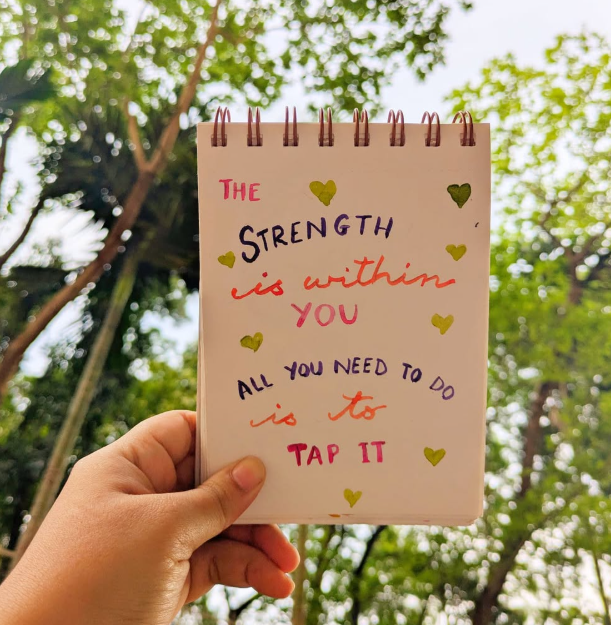 THE
STRENGTH
is within
YOU
ALL YOU NEED TO DO
is to
TAP IT